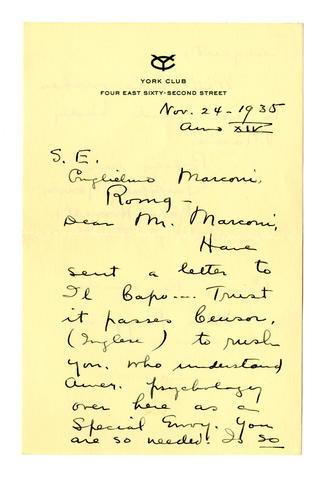 YORK CLUB
FOUR EAST SIXTY-SECOND STREET
Nov. 24 - 1935
Anno XIV
S. E.
Guglielmo Marconi,
Roma -
Dear Mr. Marconi,
Have
sent a letter to
Il Capo --- Trust
it passes Censor,
(Inglese) to rush
you, who understand
Amer. psychology
over here as a
Special Envoy. You
are so needed! Is so